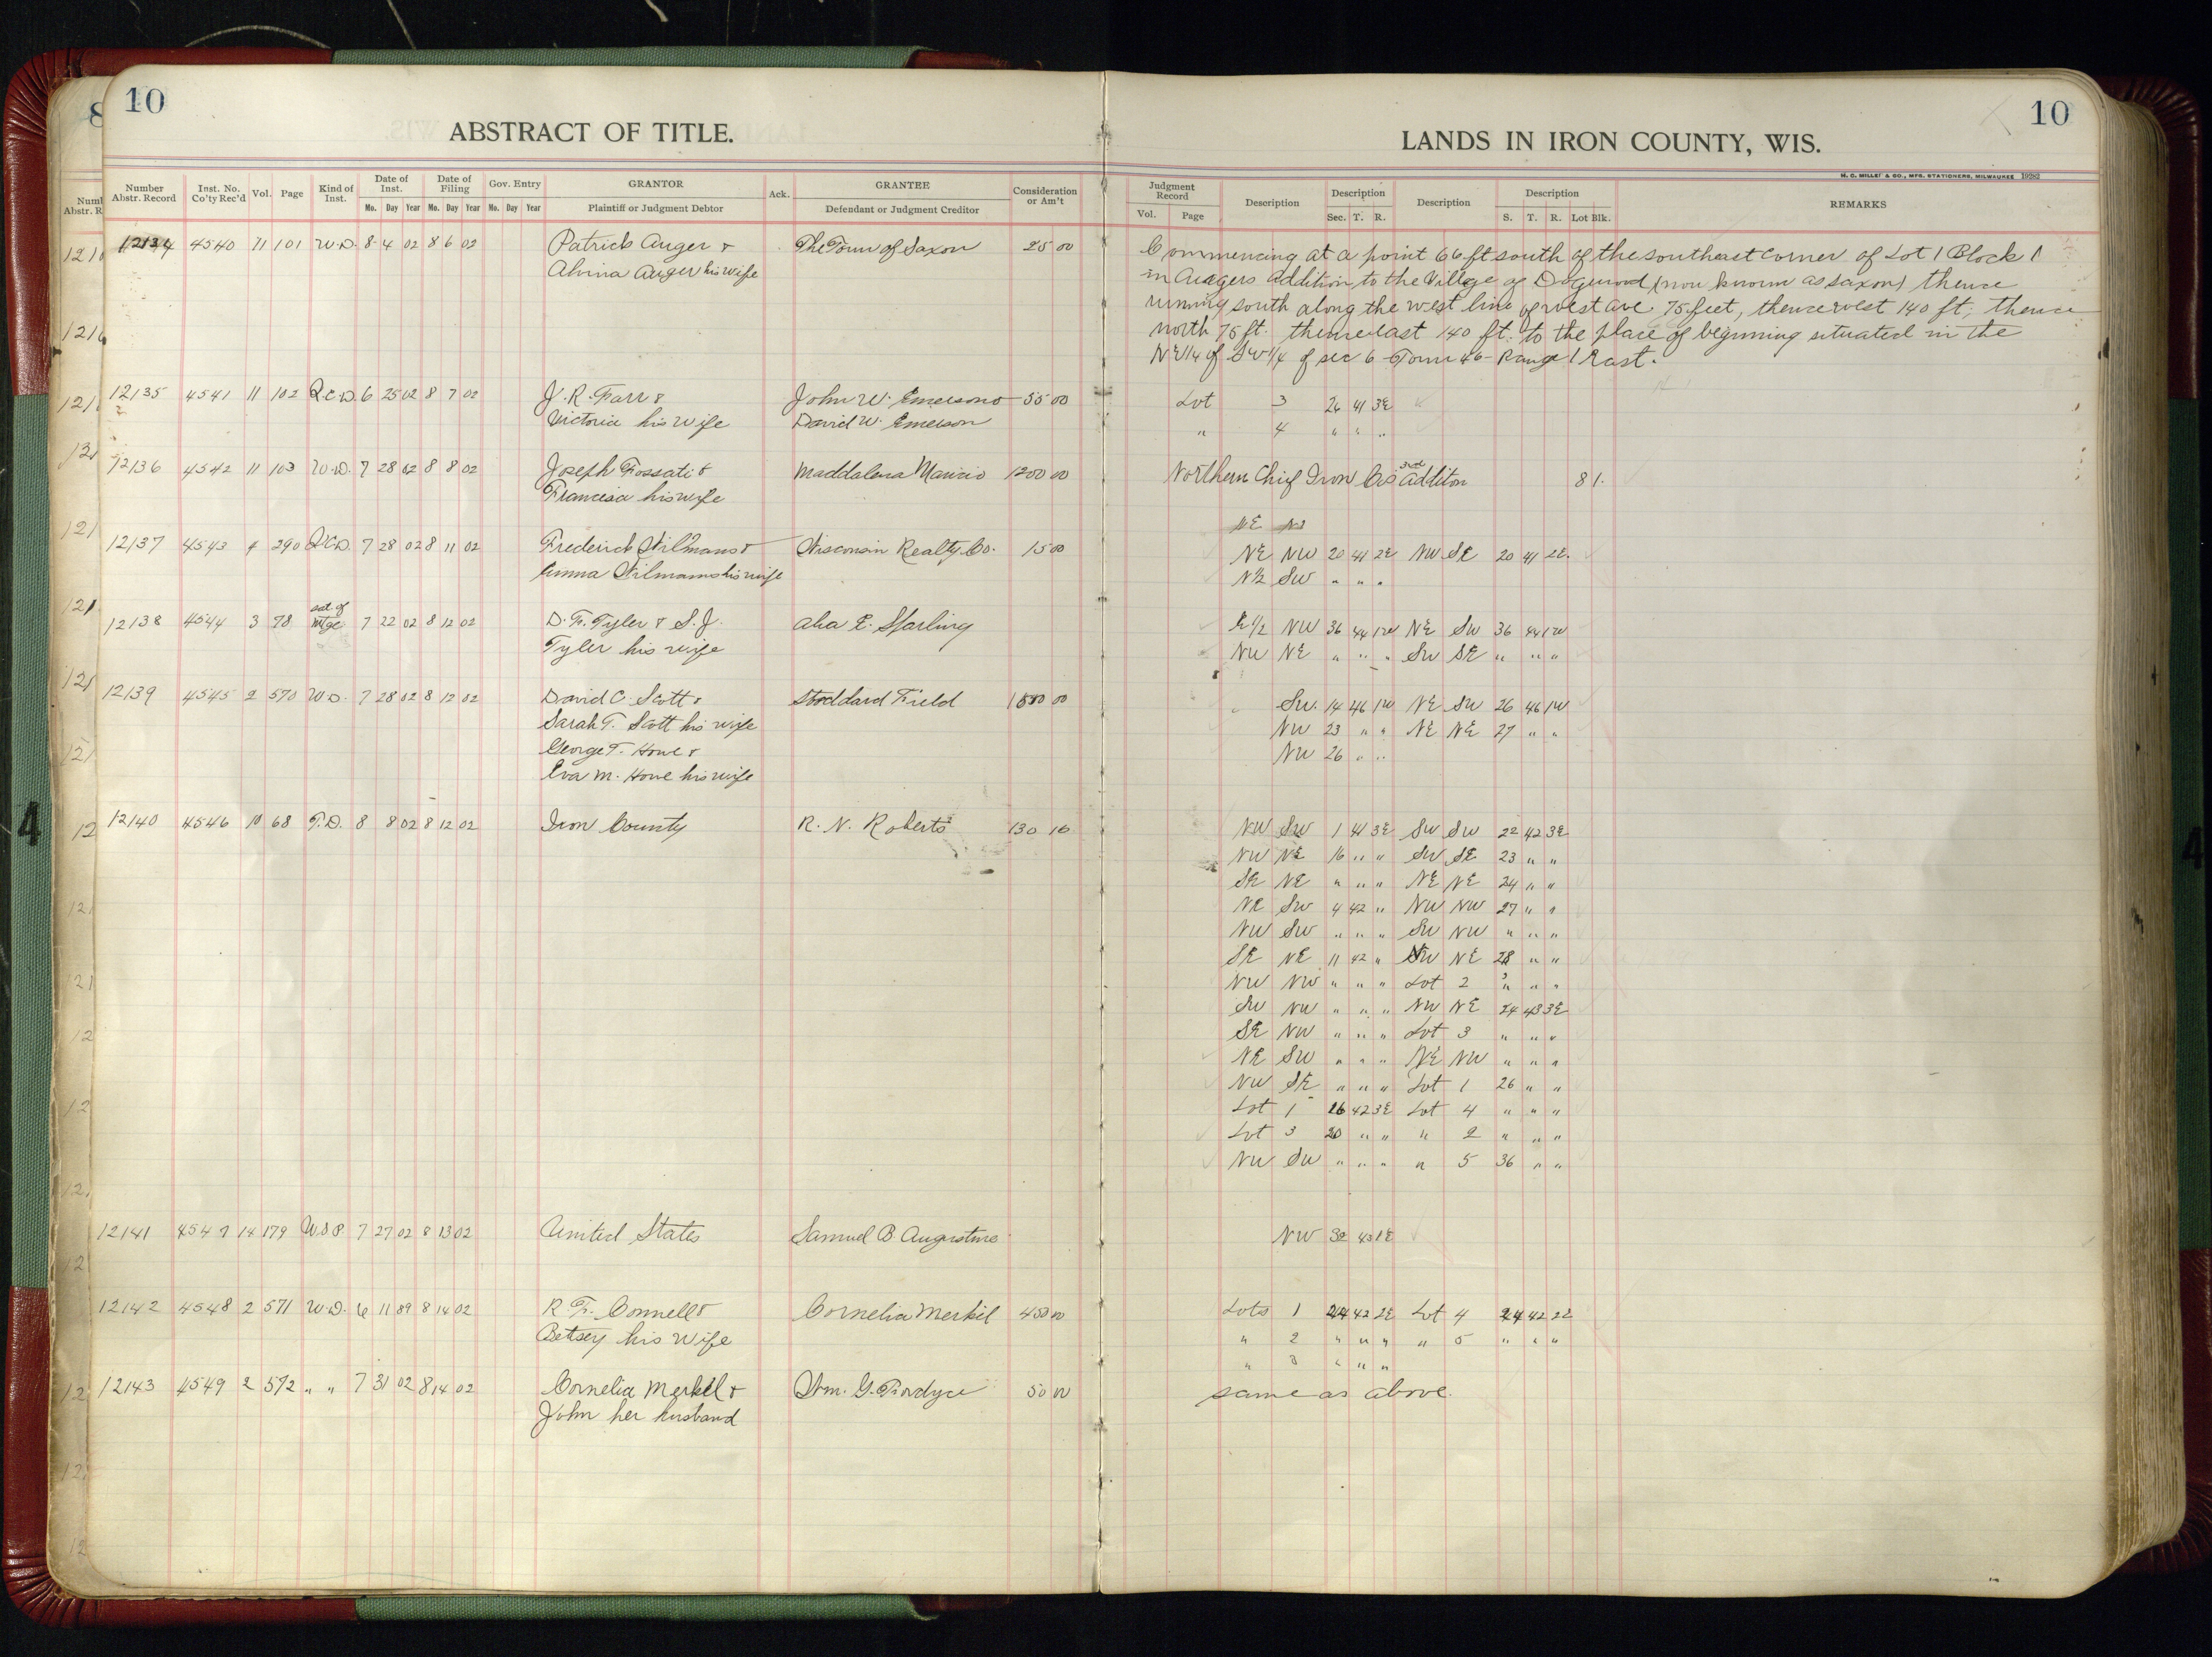 10
ABSTRACT OF TITLE.
LANDS IN IRON COUNTY, WIS.
10
H. C. MILLER & CO., MFG. STATIONERS, MILWAUKEE 19282
Number Abstr. Record Inst. No. Co'ty Rec'd Vol. Page Kind of Inst. Date of Inst. Date of Filing Gov. Entry GRANTOR Ack. GRANTEE Consideration or Am't Judgment Record Description Description Description Description REMARKS
Mo. Day Year Mo. Day Year Mo. Day Year Plaintiff or Judgment Debtor Defendant or Judgment Creditor Vol. Page Sec. T. R. S. T. R. Lot Blk.
12134 4540 11 101 W.D. 8 4 02 8 6 02 Patrick Auger & The Town of Saxon 25 00 Commencing at a point 66 ft south of the southeast corner of Lot 1 Block 1
Alvina Auger his wife in Augers addition to the Village of Dogwood (now known as Saxon) thence
running south along the west line of west ave. 75 feet, thence west 140 ft, thence
north 75 ft. thence east 140 ft. to the place of beginning situated in the
NE 1/4 of SW 1/4 of sec 6 - Town 46 - Range 1 East.
12135 4541 11 102 Q.C.D. 6 25 02 8 7 02 J. R. Farr & John W. Emerson & 55 00 Lot 3 26 41 3E
Victoria his wife David W. Emerson " 4 " " "
12136 4542 11 103 W.D. 7 28 02 8 8 02 Joseph Fossati & Maddalena 1200 00 Northern Chief Iron Co's 3rd addition 8 1.
his wife
NE
12137 4543 4 290 Q.C.D. 7 28 02 8 11 02 Frederick Wilmans & Wisconsin Realty Co. 15 00 NE NW 20 41 2E NW SE 20 41 2E.
Wilmans his wife N½ SW " " "
12138 4544 3 78 sat. of mtge 7 22 02 8 12 02 D. F. Tyler & S. J. E. Sparling E 1/2 NW 36 44 1W NE SW 36 44 1W
Tyler his wife NW NE " " " SW SE " " "
12139 4545 2 570 W.D. 7 28 02 8 12 02 David C. Scott & Stoddard Field SW. 14 46 1W NE SW 26 46 1W
Sarah T. Scott his wife NW 23 " " NE NE 27 " "
George T. Howe & NW 26 " "
Eva M. Howe his wife
12140 4546 10 68 T.D. 8 8 02 8 12 02 Iron County R. N. Roberts 130 16 NW SW 1 41 3E SW SW 22 42 3E
NW NE 16 " " SW SE 23 " "
SE NE " " " NE NE 24 " "
NE SW 4 42 " NW NW 27 " "
NW SW " " " SW NW " " "
SE NE 11 42 " NE 28 " "
NW NW " " " Lot 2 " " "
SW NW " " " NW NE 24 43 3E
SE NW " " " Lot 3 " " "
NE SW " " " NE NW " " "
NW SE " " " Lot 1 26 " "
Lot 1 16 42 3E Lot 4 " " "
Lot 3 20 " " " 2 " " "
NW SW " " " " 5 36 " "
12141 4547 14 179 7 27 02 8 13 02 United States Samuel B. Augustine NW 32 43 1E
12142 4548 2 571 W.D. 6 11 89 8 14 02 R. F. Connell & Cornelia Merkel 450 00 Lots 1 24 42 2E Lot 4 24 42 2E
Betsey his wife " 2 " " " " 5 " " "
" 3 " " "
12143 4549 2 572 " " 7 31 02 8 14 02 Cornelia Merkel & Wm. G. 50 00 same as above.
John her husband